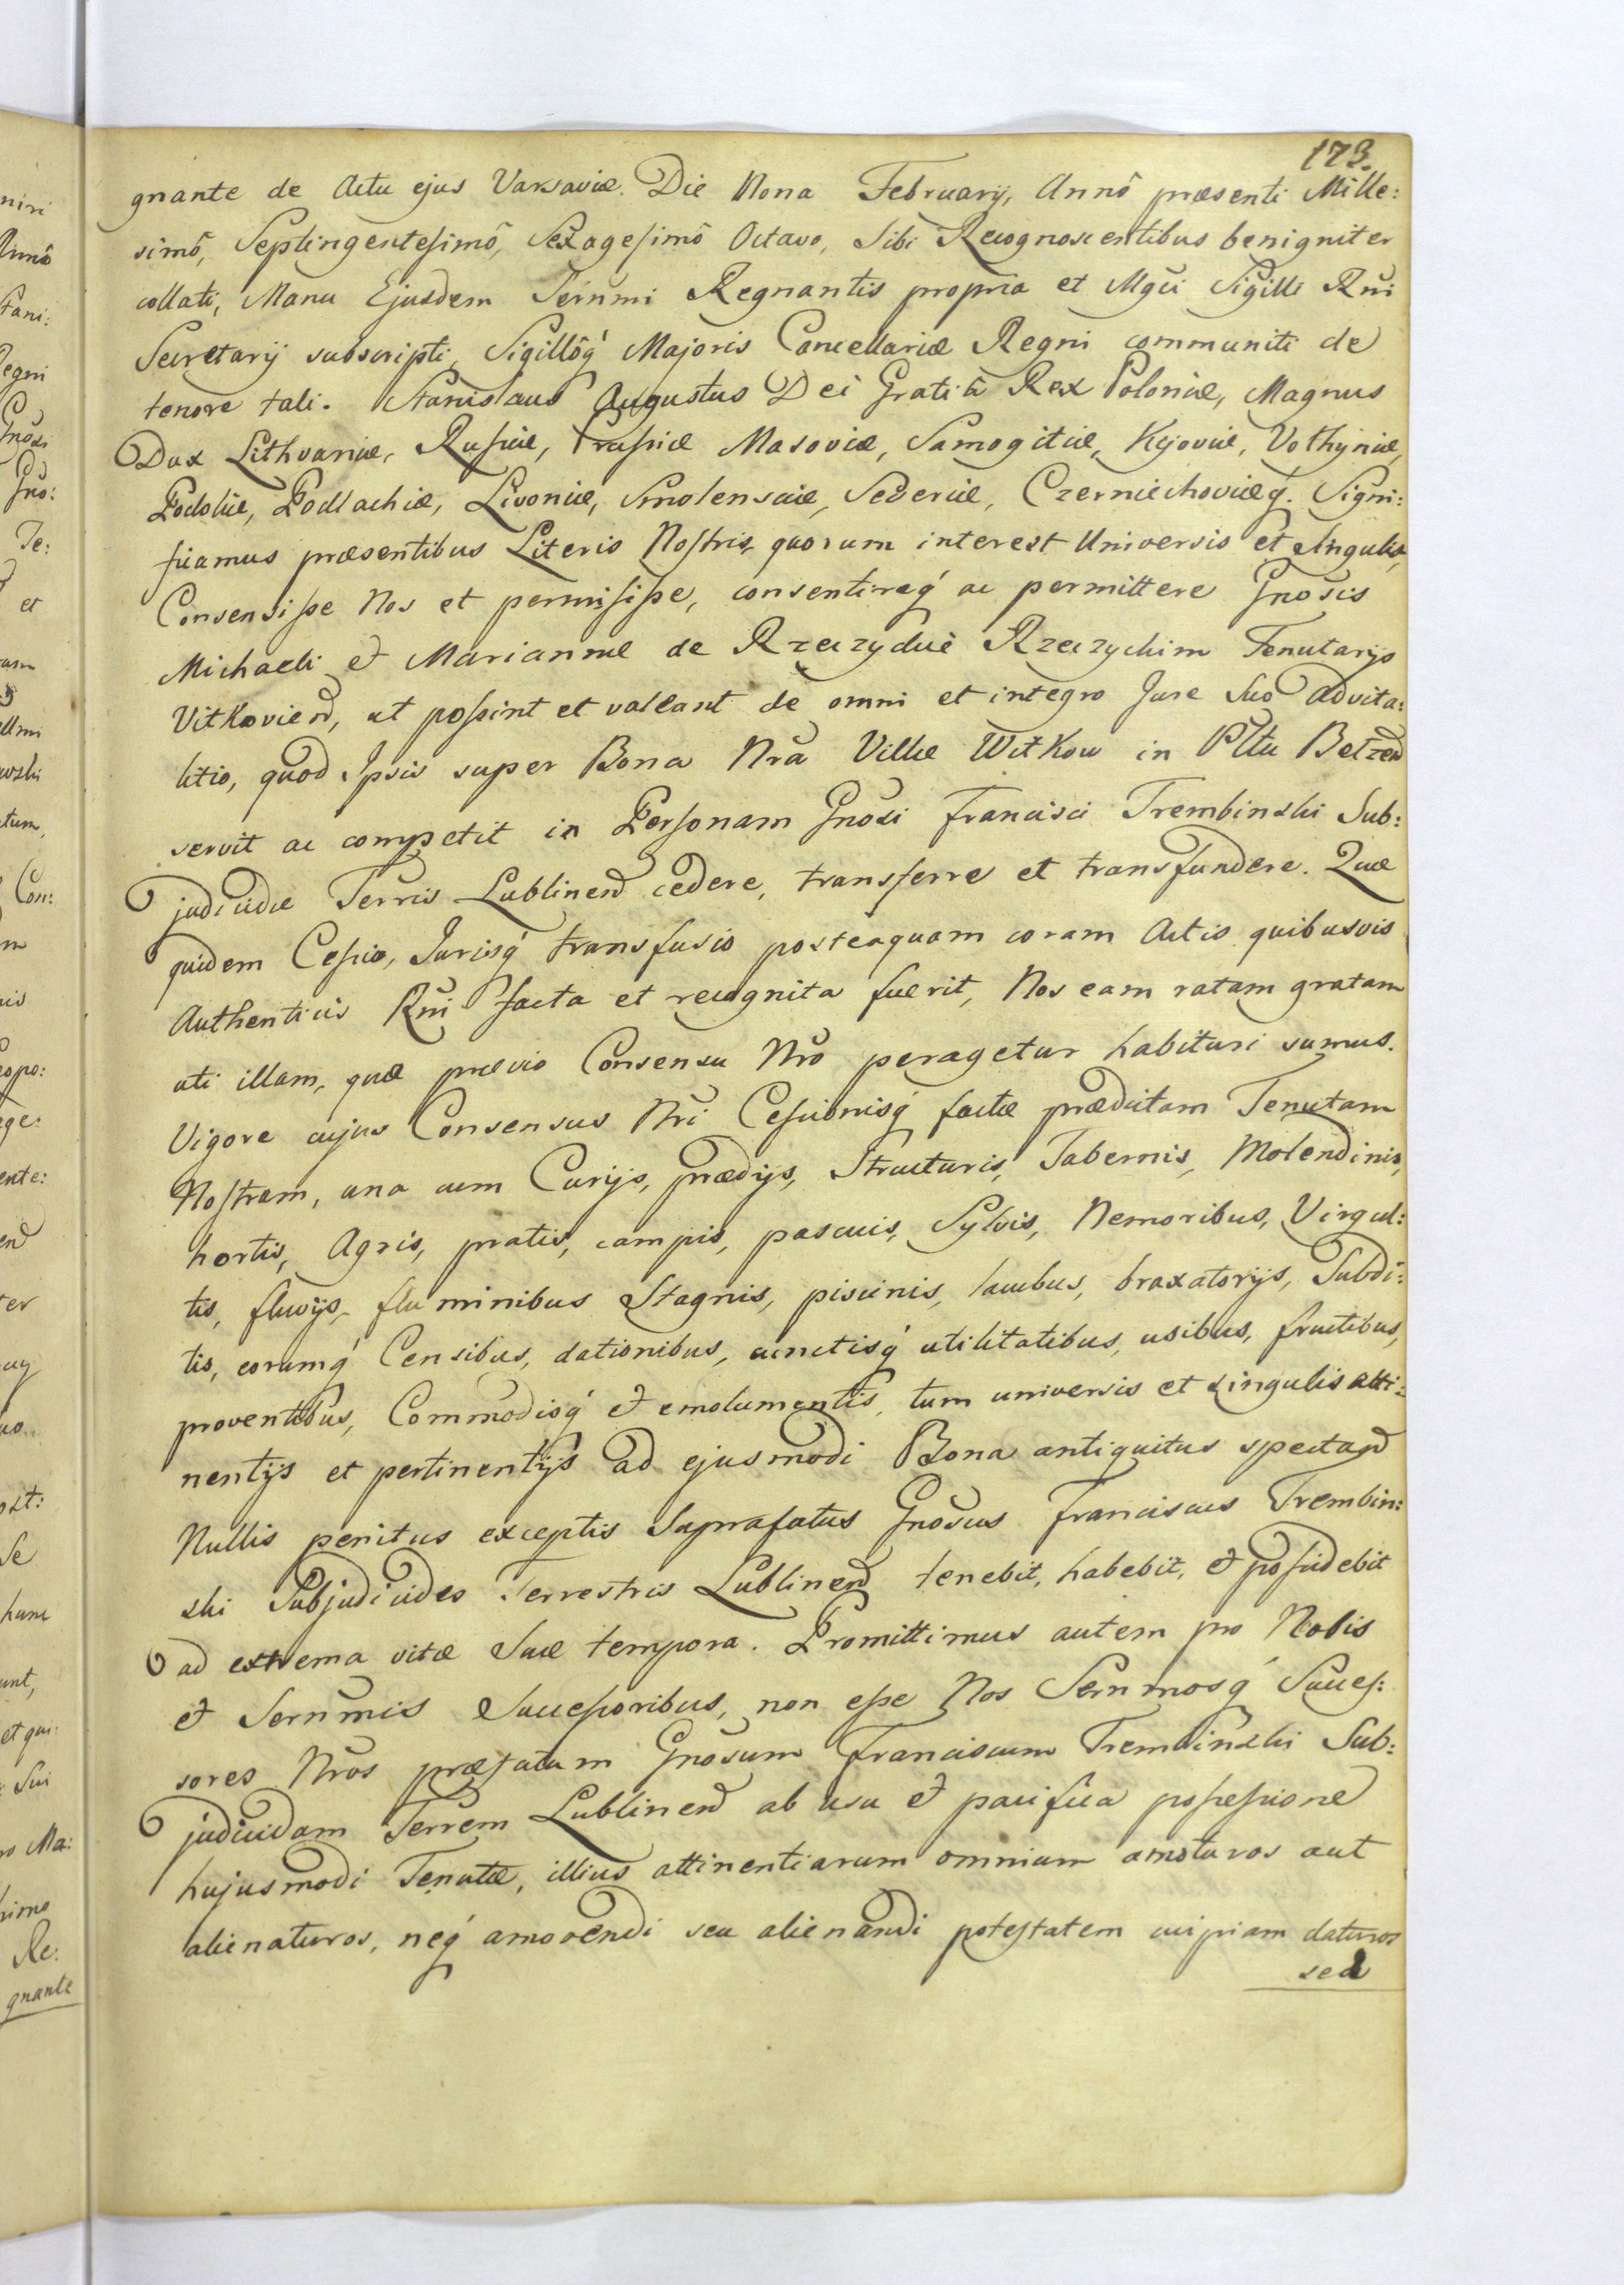 173.
gnante de Actu ejus Varsaviæ. Die Nona February, Annô præsenti Mille:
simô, Septingentesimô, Sexagesimô Octavo, Sibi Recognoscentibus benigniter
collati, Manu Ejusdem Sernmi Regnantis propria et Mgci Sigilli Rni
Secretarij subscripti, Sigillôq́ Majoris Cancellariæ Regni communiti de
tenore tali. Stanislaus Augustus Dei Gratiâ Rex Poloniæ, Magnus
Dux Lithvaniæ, Russiæ, Prussiæ Masoviæ, Samogitiæ, Kijoviæ, Volhyniæ,
Podoliæ, Podlachiæ, Livoniæ, Smolensciæ, Severiæ, Czerniechoviæq́. Signi:
ficamus præsentibus Literis Nostris, quorum interest Universis et Singulis,
Consensisse Nos et permisisse, consentireq́ ac permittere Gnosis
Michaeli et Mariannæ de Rzeczyckie Rzeczyckim Tenutarijs
Vitkovien, ut possint et valeant de omni et integro Jure Suo advita:
litio, quod Ipsis super Bona Nra Villæ Witkow in Pttu Belzen
servit ac competit in Personam Gnosi Francisci Trembinski Sub:
judicidæ Terris Lublinen cedere, transferre et transfundere. Quæ
quidem Cessio, Jurisq́ transfusio posteaquam coram Actis quibusvis
Authenticis Rni facta et recognita fuerit, Nos eam ratam gratam
uti illam, quæ prævio Consensu Nro peragetur habituri sumus.
Vigore cujus Consensus Nri Cessionisq́ factæ prædictam Tenutam
Nostram, una cum Curijs, prædijs, Structuris, Tabernis, Molendinis,
hortis, Agris, pratis, campis, pascuis, Sylvis, Nemoribus, Virgul:
tis, fluvijs, fluminibus Stagnis, piscinis, lacubus, braxatorijs, Subdi:
tis, eorumq́ Censibus, dationibus, cunctisq́ utilitatibus, usibus, fructibus,
proventibus, Commodisq́ et emolumentis, tum universis et singulis atti:
nentijs et pertinentijs ad ejusmodi Bona antiquitus spectand
Nullis penitus exceptis Suprafatus Gnosus Franciscus Trembin:
ski Subjudicides Terrestris Lublinen tenebit, habebit, et possidebit
ad extrema vitæ Suæ tempora. Promittimus autem pro Nobis
et Sernmis Successoribus, non esse Nos Sernmosq́ Succes:
sores Nros præfatum Gnosum Franciscum Trembinski Sub:
judicidam Terrem Lublinen ab usu et pacifica possessione
hujusmodi Tenutæ, illius attinentiarum omnium amoturos aut
alienaturos, neq́ amovendi seu alienandi potestatem cuipiam daturos
sed